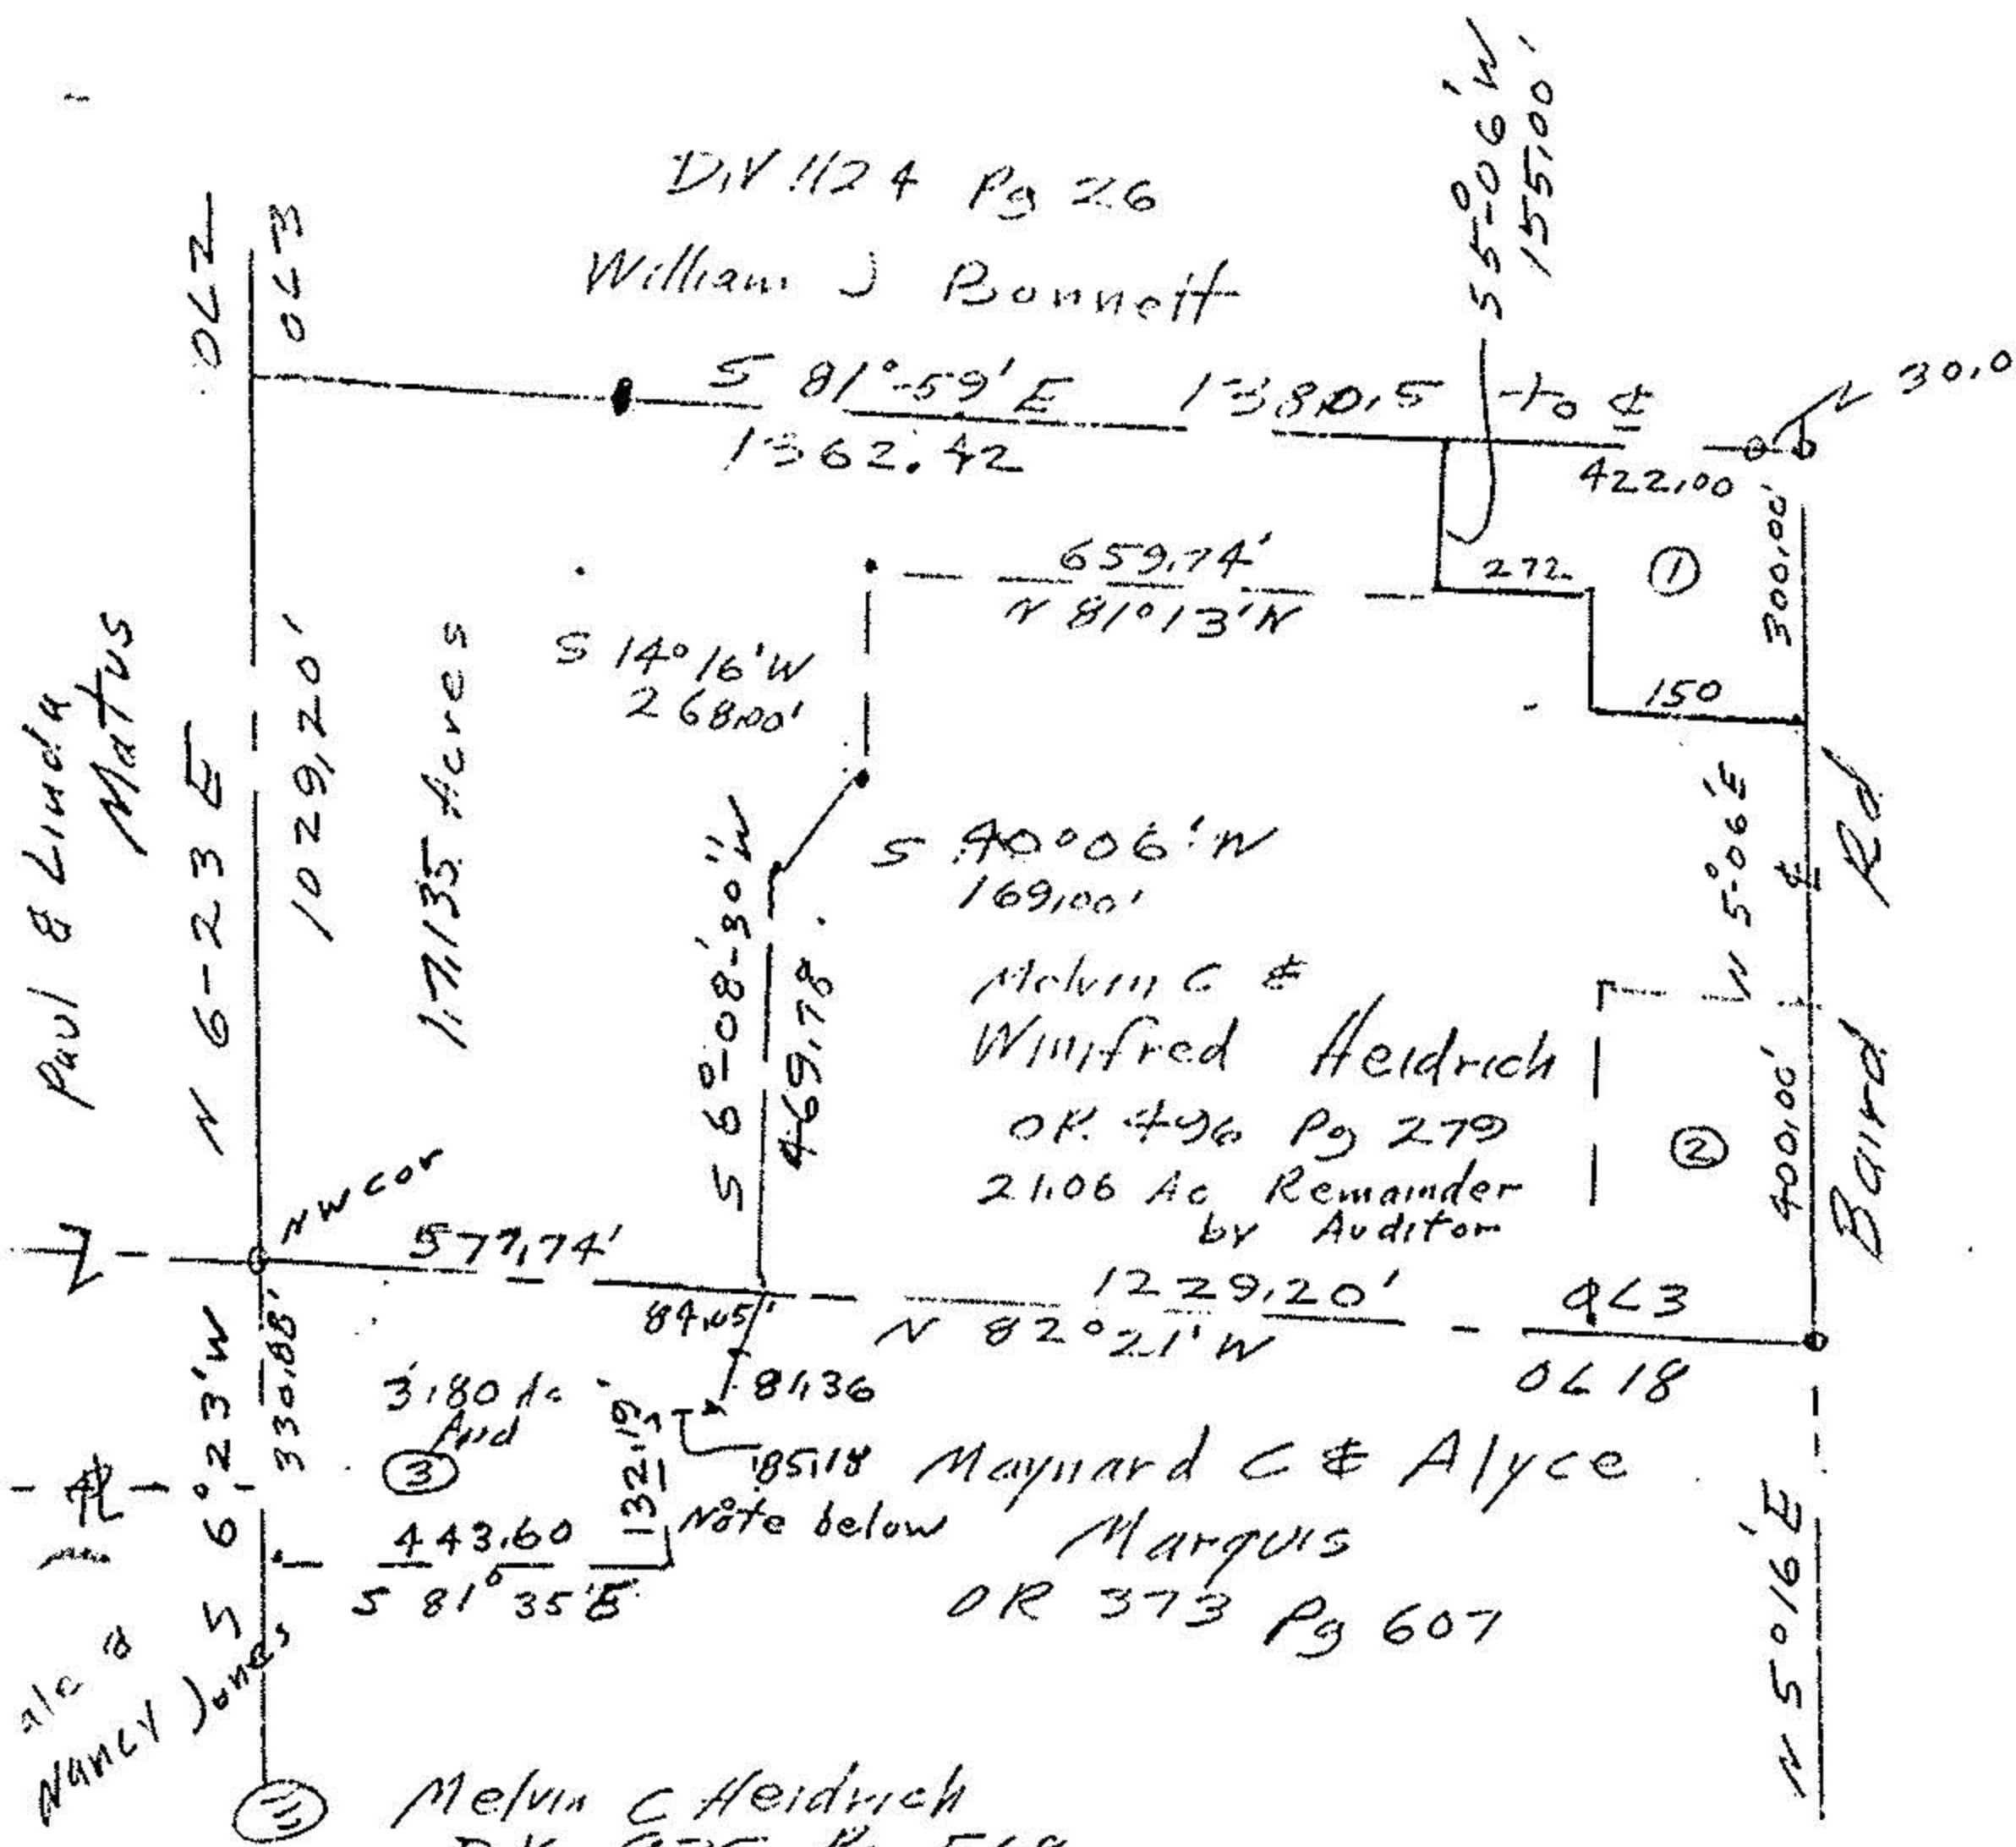 D.V 1124 Pg 26
William J Bonnett
S 5°-06'W
155.00'
OL2
OL3
S 81°-59'E 1380.5 to ℄
1362.42
30.0
422.00
300.00'
①
272
150
659.74'
N 81°13'W
S 14°16'W
268.00'
Paul & Linda
Matus
N 6-23 E
1029.20'
17.135 Acres
S 6°-08'-30"W
469.78
S 40°06'W
169.00'
N 5°-06'E
℄
Baird Rd
Melvin C &
Winifred Heidrich
OR. 496 Pg 279
21.06 Ac Remainder
by Auditor
②
400.00'
NW cor
577.74'
1229.20'
N 82°21'W
OL3
OL 18
84.05'
81.36
85.18
Note below
132.19
S 6°23'W
330.88'
3.80 Ac
And
③
443.60
S 81°35'E
Maynard C & Alyce
Marquis
OR 373 Pg 607
N 5°16'E
Nancy Jones
③ Melvin C Heidrich